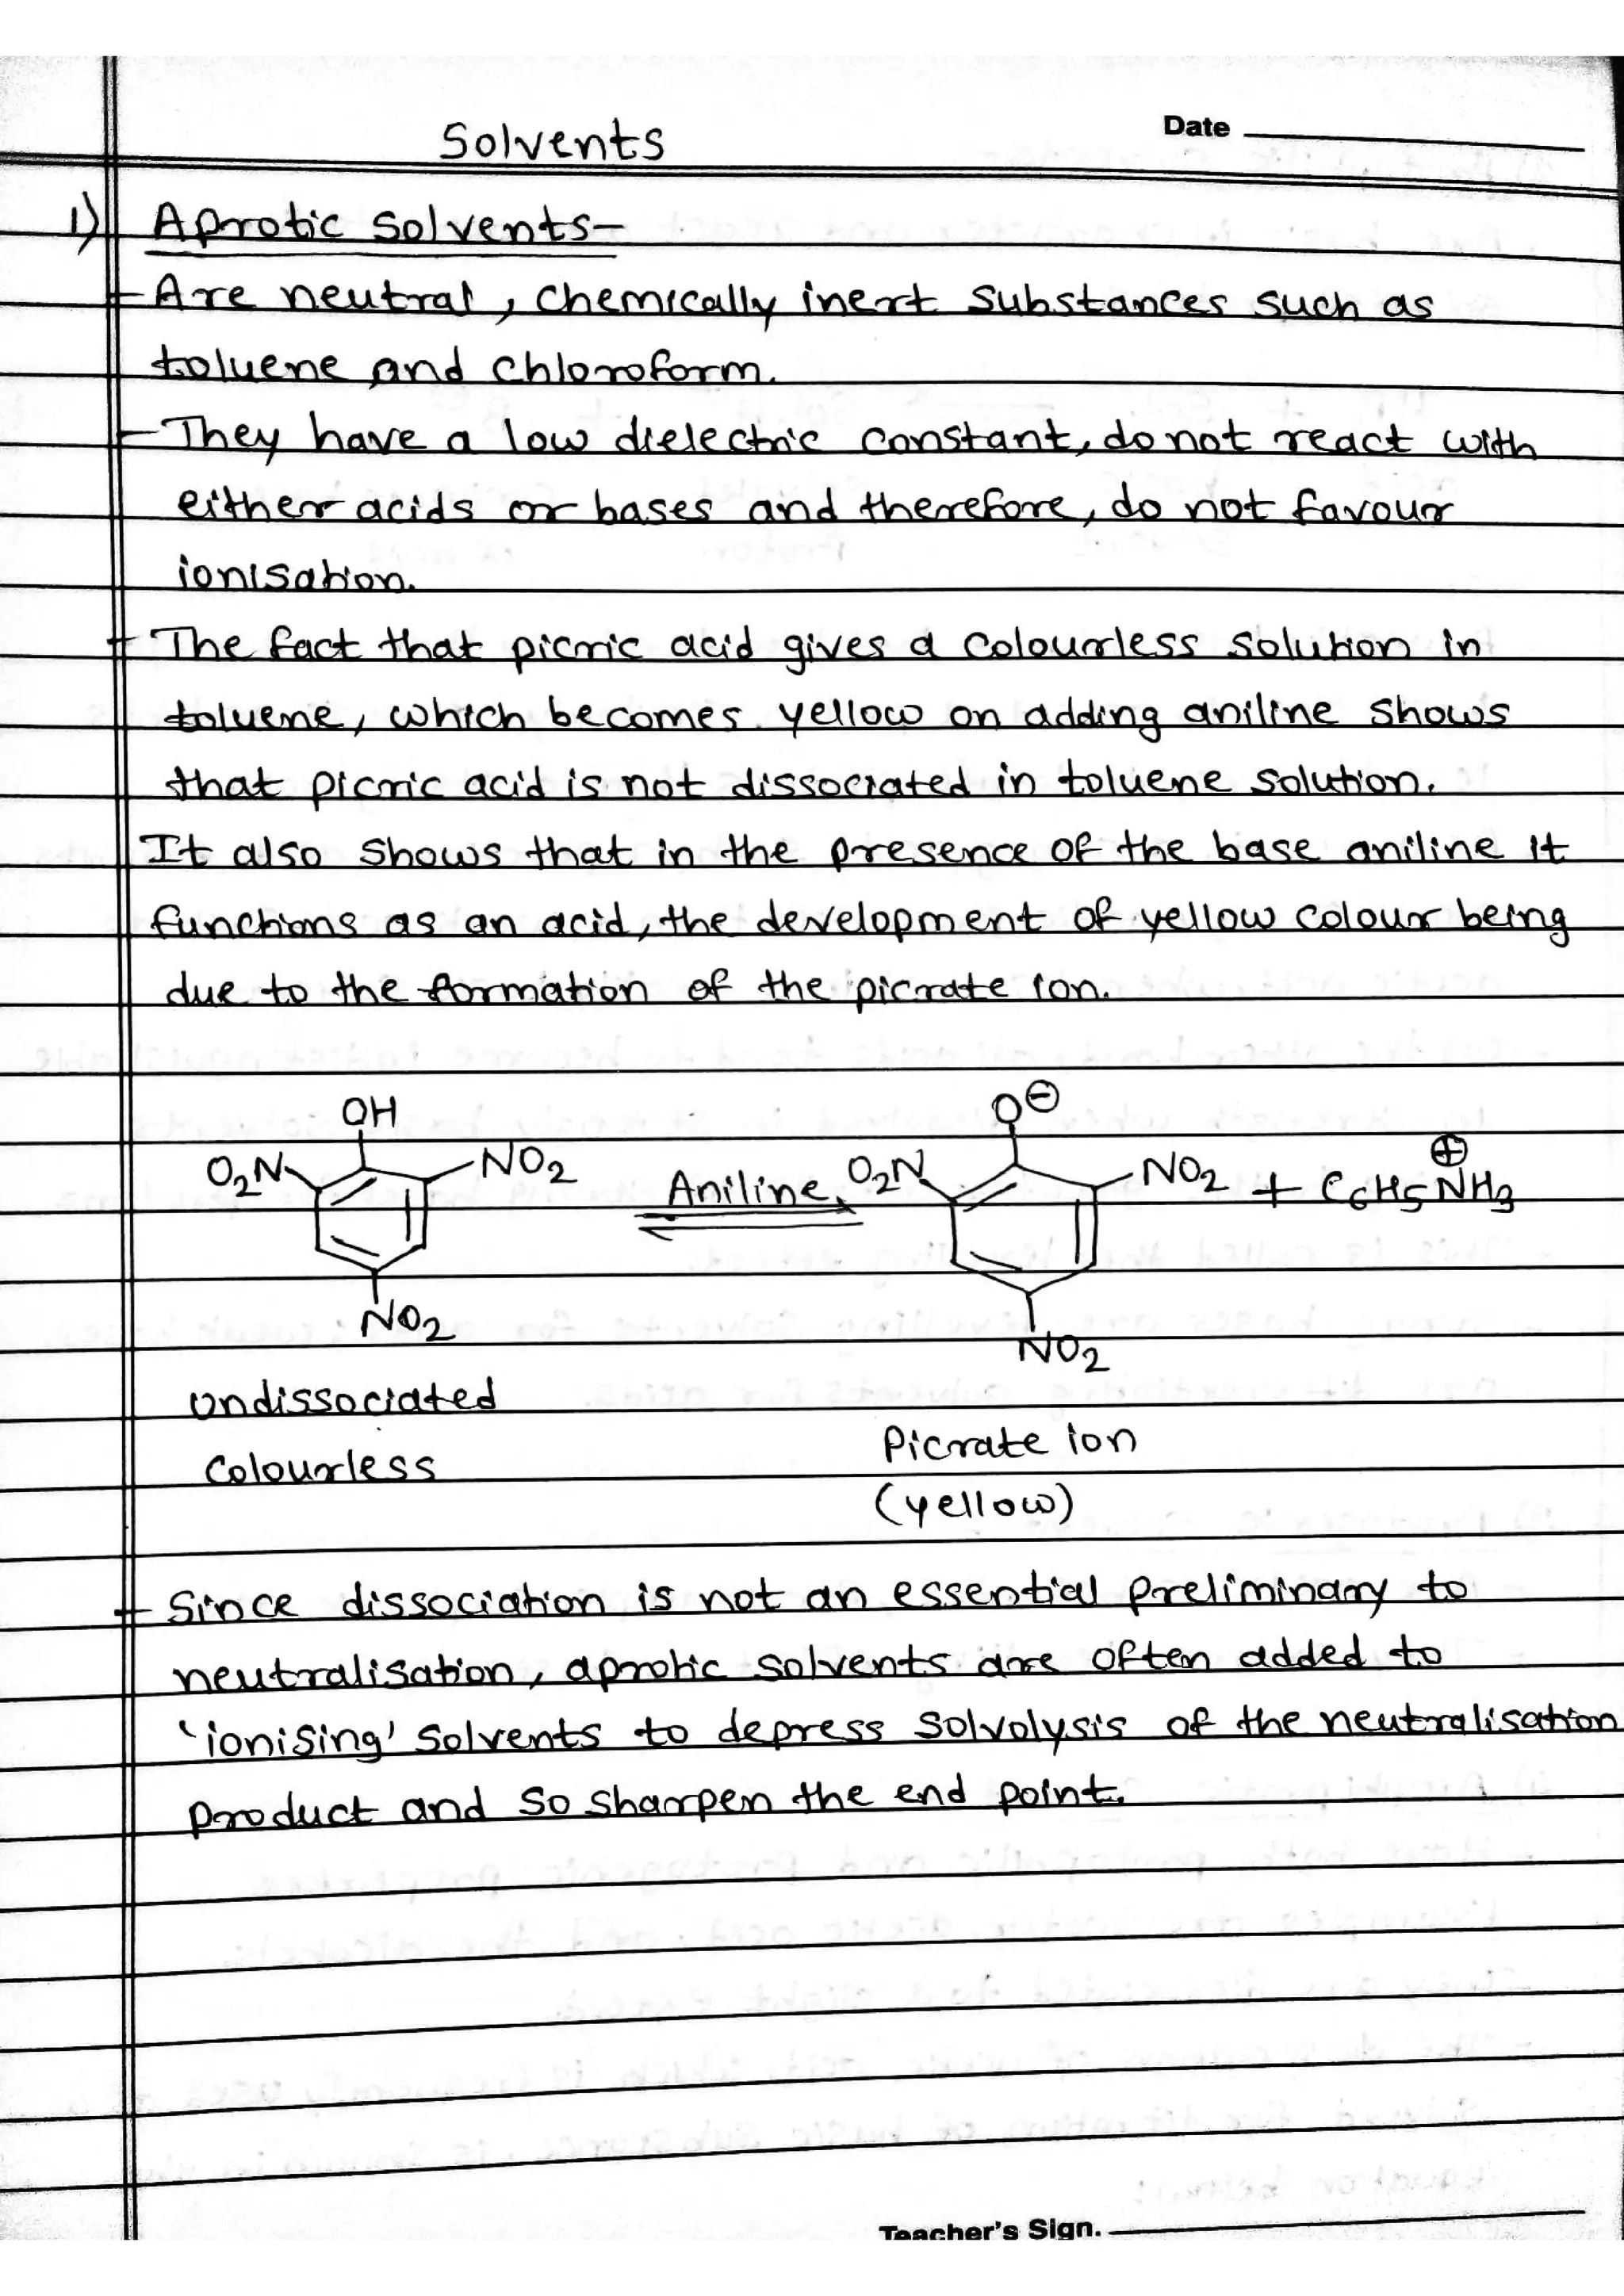 Solvents
Date
1) Aprotic Solvents-
- Are neutral, chemically inert substances such as
toluene and chloroform.
- They have a low dielectric constant, do not react with
either acids or bases and therefore, do not favour
ionisation.
- The fact that picric acid gives a colourless solution in
toluene, which becomes yellow on adding aniline shows
that picric acid is not dissociated in toluene solution.
It also shows that in the presence of the base aniline it
functions as an acid, the development of yellow colour being
due to the formation of the picrate ion.
OH
O₂N
NO₂
NO₂
Aniline
O⊖
O₂N
NO₂
NO₂
+ C₆H₅N⊕H₃
Undissociated
Colourless
Picrate ion
(yellow)
- Since dissociation is not an essential preliminary to
neutralisation, aprotic solvents are often added to
'ionising' solvents to depress solvolysis of the neutralisation
product and so sharpen the end point.
Teacher's Sign.